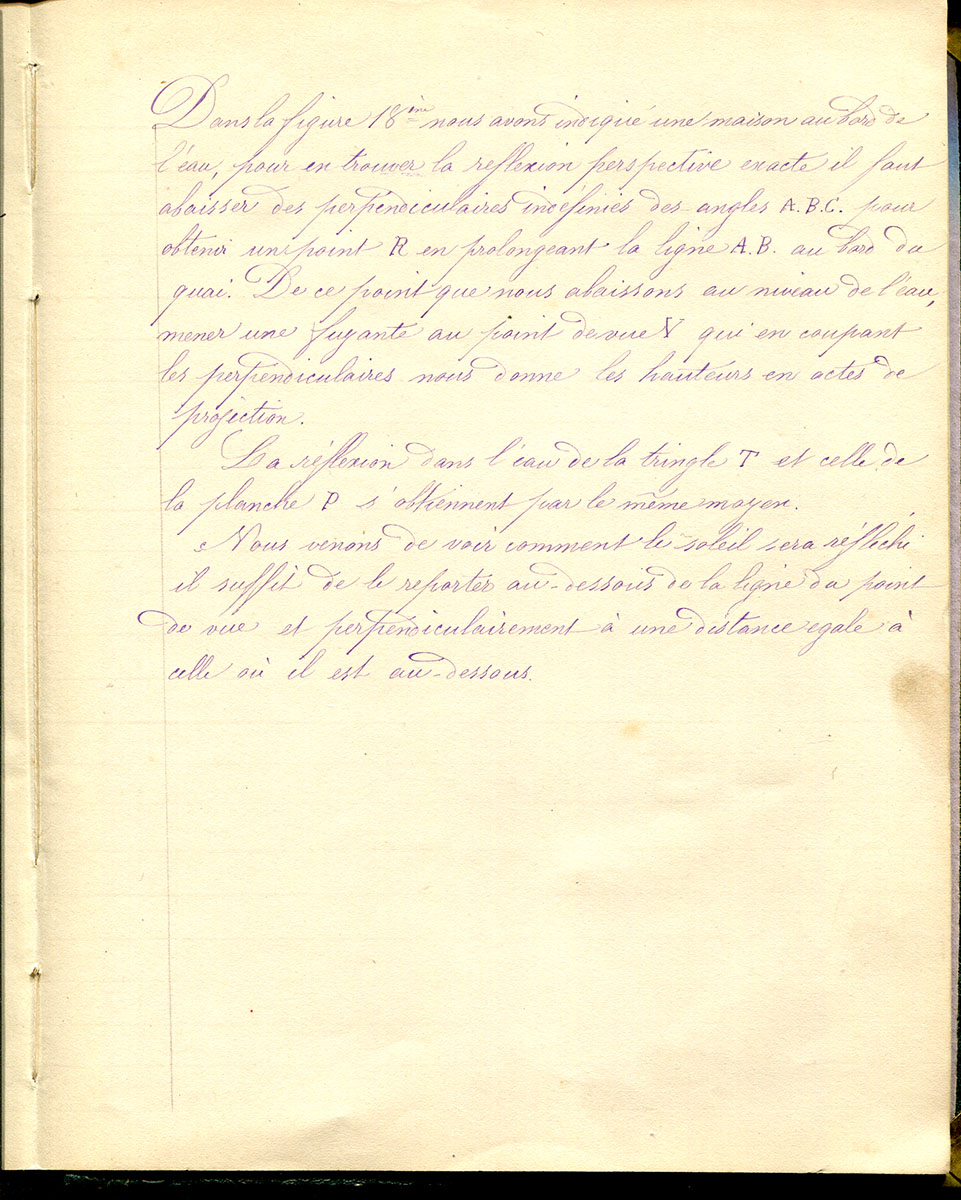 Dans la figure 18ème nous avons indiqué une maison au bord de
l'eau, pour en trouver la reflexion perspective exacte il faut
abaisser des perpendiculaires indéfinies des angles A.B.C. pour
obtenir un point R en prolongeant la ligne A.B. au bord du
quai. De ce point que nous abaissons au niveau de l'eau,
mener une fuyante au point de vue V qui en coupant
les perpendiculaires nous donne les hauteurs en actes de
projection.
La réflexion dans l'eau de la tringle T et celle de
la planche P s'obtiennent par le même moyen.
Nous venons de voir comment le soleil sera réfléchi
il suffit de le reporter au-dessous de la ligne du point
de vue et perpendiculairement à une distance egale à
celle où il est au-dessous.